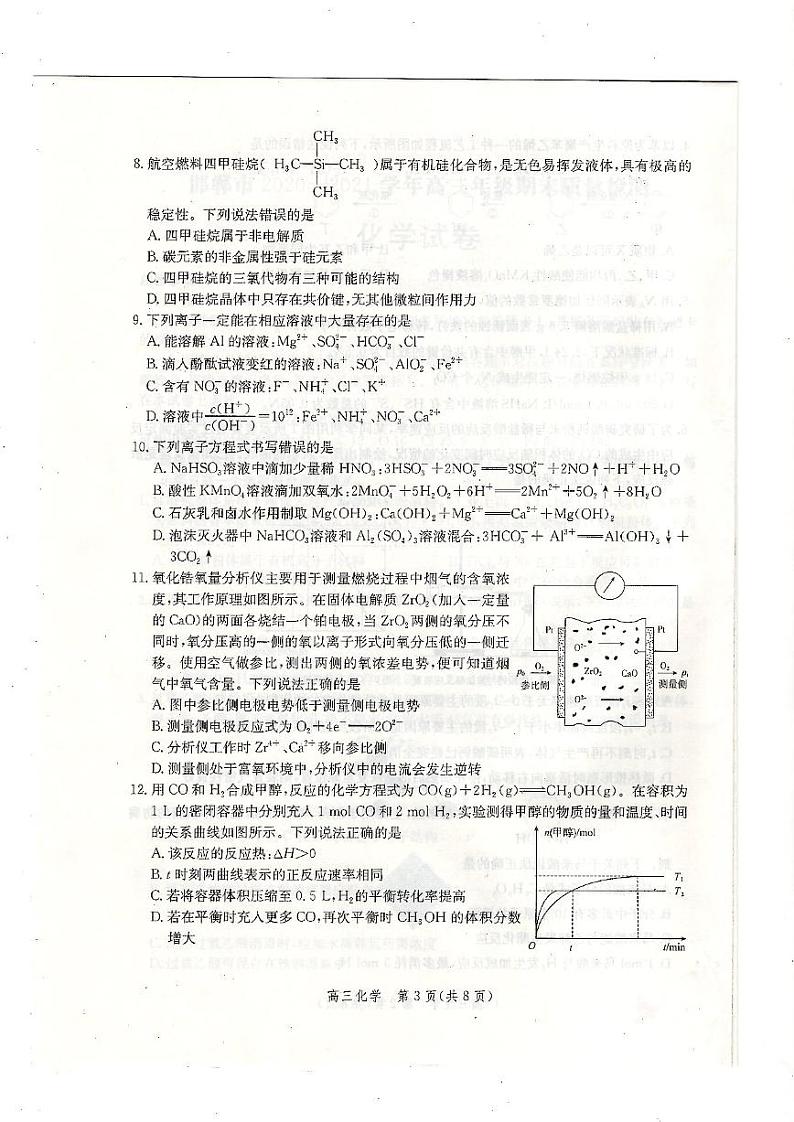 CH₃
8. 航空燃料四甲硅烷( H₃C—Si—CH₃ )属于有机硅化合物,是无色易挥发液体,具有极高的
CH₃
稳定性。下列说法错误的是
A. 四甲硅烷属于非电解质
B. 碳元素的非金属性强于硅元素
C. 四甲硅烷的三氯代物有三种可能的结构
D. 四甲硅烷晶体中只存在共价键,无其他微粒间作用力
9. 下列离子一定能在相应溶液中大量存在的是
A. 能溶解 Al 的溶液:Mg²⁺、SO₄²⁻、HCO₃⁻、Cl⁻
B. 滴入酚酞试液变红的溶液:Na⁺、SO₄²⁻、AlO₂⁻、Fe²⁺
C. 含有 NO₃⁻ 的溶液:F⁻、NH₄⁺、Cl⁻、K⁺
D. 溶液中 c(H⁺)/c(OH⁻) =10¹²:Fe²⁺、NH₄⁺、NO₃⁻、Ca²⁺
10. 下列离子方程式书写错误的是
A. NaHSO₃溶液中滴加少量稀 HNO₃:3HSO₃⁻+2NO₃⁻══3SO₄²⁻+2NO↑+H⁺+H₂O
B. 酸性 KMnO₄溶液滴加双氧水:2MnO₄⁻+5H₂O₂+6H⁺══2Mn²⁺+5O₂↑+8H₂O
C. 石灰乳和卤水作用制取 Mg(OH)₂:Ca(OH)₂+Mg²⁺══Ca²⁺+Mg(OH)₂
D. 泡沫灭火器中 NaHCO₃溶液和 Al₂(SO₄)₃溶液混合:3HCO₃⁻+Al³⁺══Al(OH)₃↓+
3CO₂↑
11. 氧化锆氧量分析仪主要用于测量燃烧过程中烟气的含氧浓
度,其工作原理如图所示。在固体电解质 ZrO₂(加入一定量
的 CaO)的两面各烧结一个铂电极,当 ZrO₂两侧的氧分压不
同时,氧分压高的一侧的氧以离子形式向氧分压低的一侧迁
移。使用空气做参比,测出两侧的氧浓差电势,便可知道烟
气中氧气含量。下列说法正确的是
A. 图中参比侧电极电势低于测量侧电极电势
B. 测量侧电极反应式为 O₂+4e⁻══2O²⁻
C. 分析仪工作时 Zr⁴⁺、Ca²⁺移向参比侧
D. 测量侧处于富氧环境中,分析仪中的电流会发生逆转
Pt
Pt
O²⁻
p₀ O₂
参比侧
ZrO₂ CaO
O₂ p₁
测量侧
O²⁻
12. 用 CO 和 H₂合成甲醇,反应的化学方程式为 CO(g)+2H₂(g)⇌CH₃OH(g)。在容积为
1 L 的密闭容器中分别充入 1 mol CO和 2 mol H₂,实验测得甲醇的物质的量和温度、时间
的关系曲线如图所示。下列说法正确的是
A. 该反应的反应热:ΔH>0
B. t 时刻两曲线表示的正反应速率相同
C. 若将容器体积压缩至 0.5 L,H₂的平衡转化率提高
D. 若在平衡时充入更多 CO,再次平衡时 CH₃OH 的体积分数
增大
n(甲醇)/mol
T₁
T₂
O t t/min
高三化学 第 3 页(共 8 页)